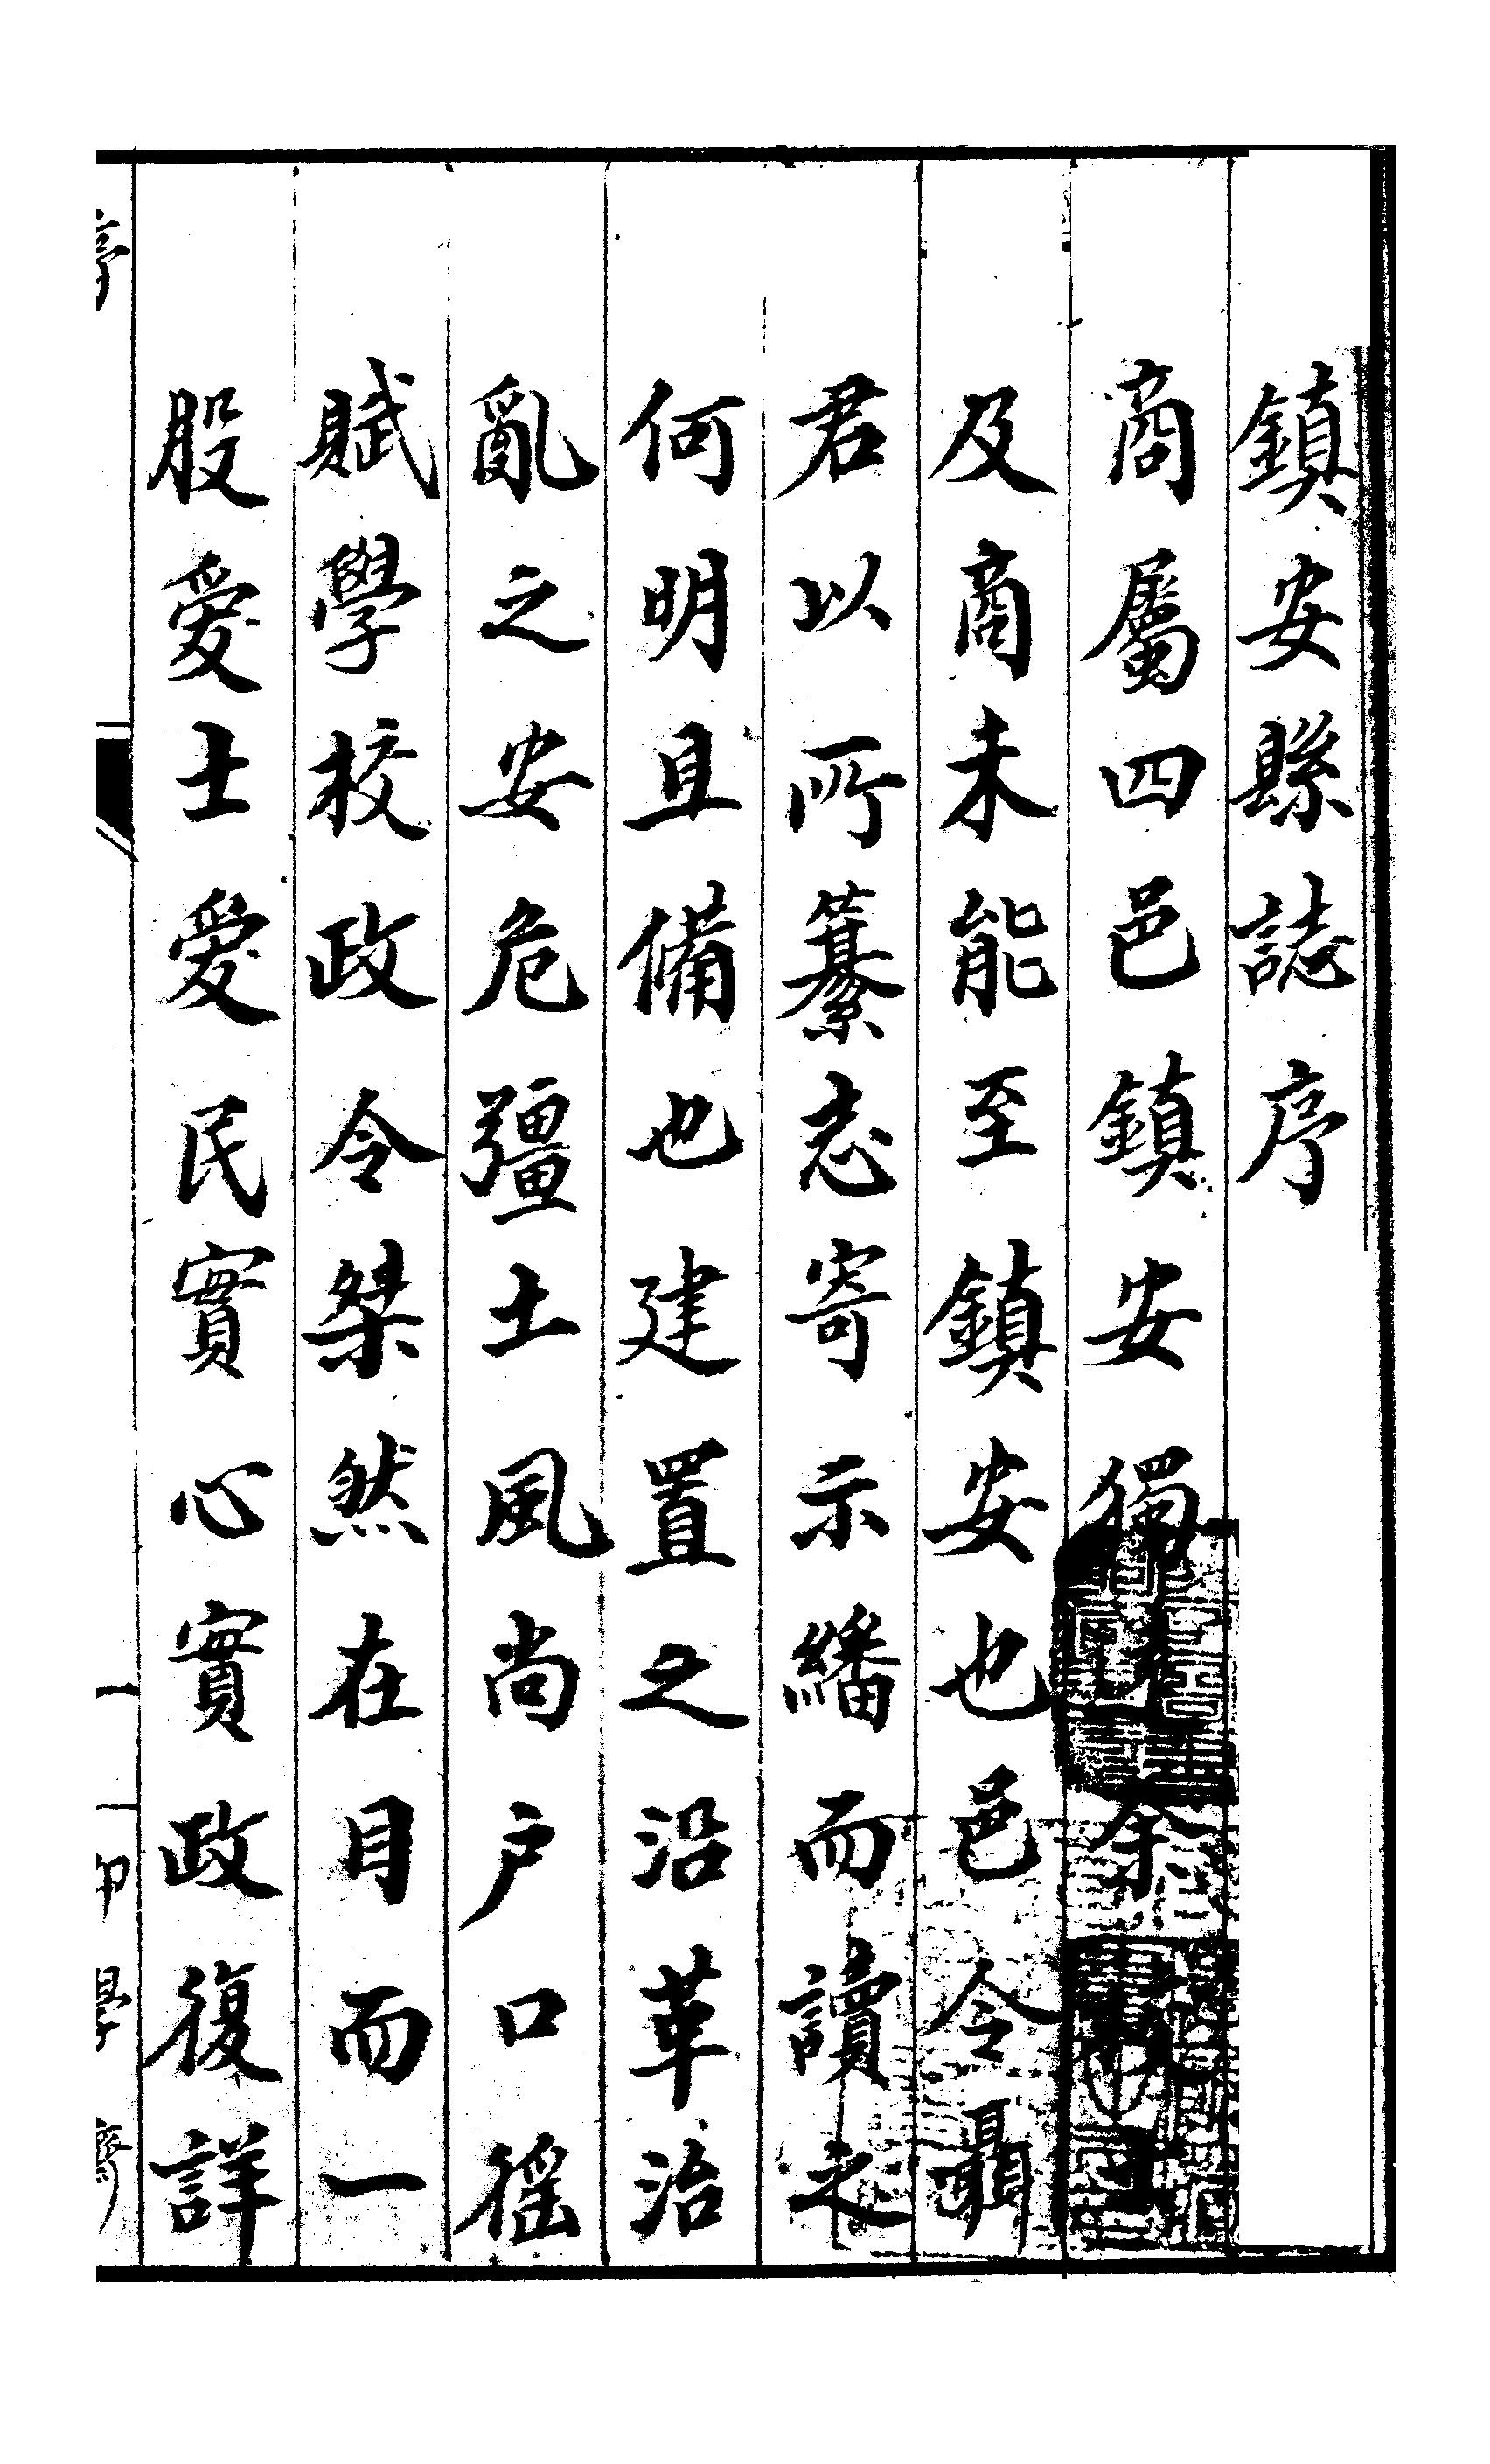 鎮安縣誌序
商屬四邑鎮安獨
余
及商未能至鎮安安也邑令聶
君以所纂志寄示繙而讀之
何明且備也建置之沿革治
亂之安危疆土風尚户口徭
賦學校政令桀然在目而一
股愛士愛民實心實政復詳
序
一
印學齋